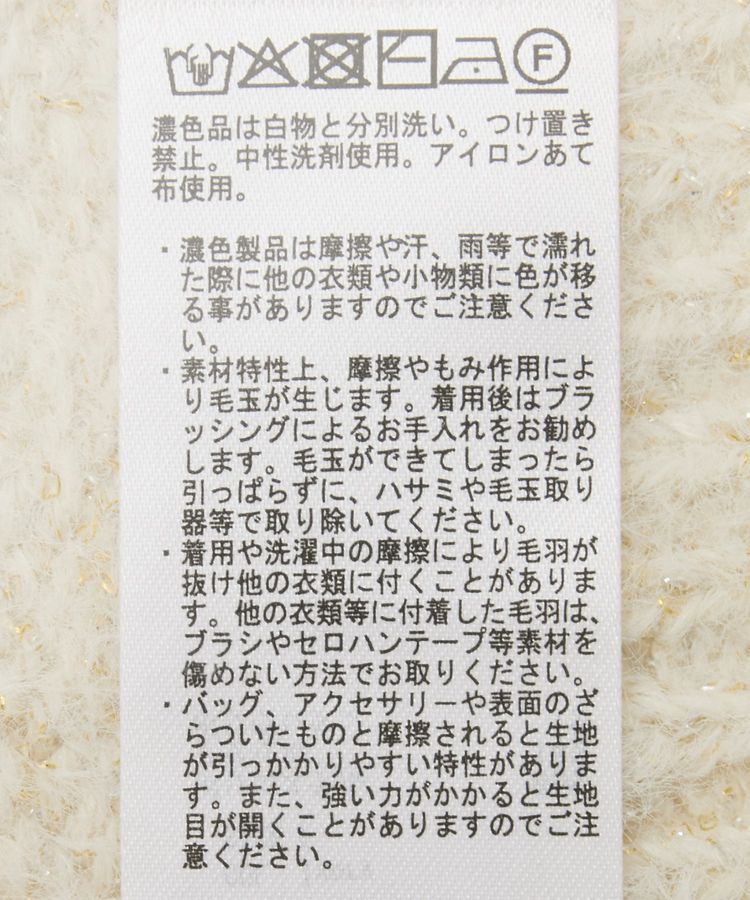 F
濃色品は白物と分別洗い。つけ置き
禁止。中性洗剤使用。アイロンあて
布使用。
・濃色製品は摩擦や汗、雨等で濡れ
た際に他の衣類や小物類に色が移
る事がありますのでご注意くださ
い。
・素材特性上、摩擦やもみ作用によ
り毛玉が生じます。着用後はブラ
ッシングによるお手入れをお勧め
します。毛玉ができてしまったら
引っぱらずに、ハサミや毛玉取り
器等で取り除いてください。
・着用や洗濯中の摩擦により毛羽が
抜け他の衣類に付くことがありま
す。他の衣類等に付着した毛羽は、
ブラシやセロハンテープ等素材を
傷めない方法でお取りください。
・バッグ、アクセサリーや表面のざ
らついたものと摩擦されると生地
が引っかかりやすい特性がありま
す。また、強い力がかかると生地
目が開くことがありますのでご注
意ください。